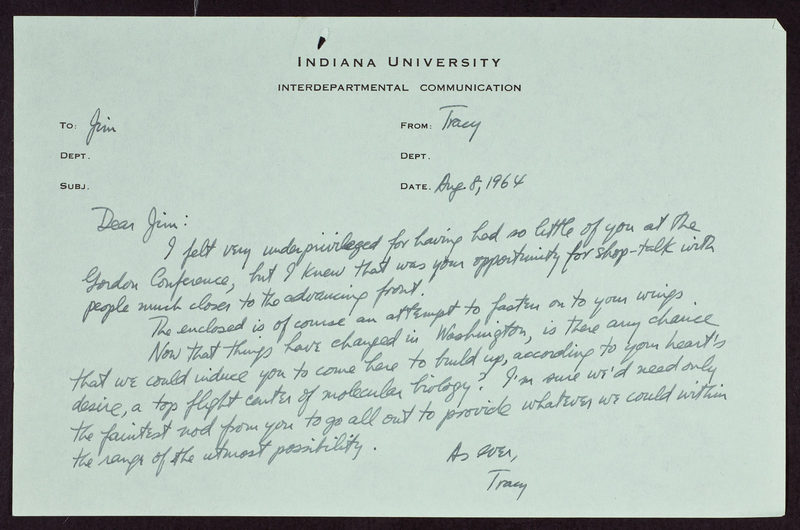 INDIANA UNIVERSITY
INTERDEPARTMENTAL COMMUNICATION
TO: Jim
FROM: Tracy
DEPT.
DEPT.
SUBJ.
DATE. Aug. 8, 1964
Dear Jim:
I felt very underprivileged for having had so little of you at the
Gordon Conference, but I knew that was your opportunity for shop-talk with
people much closer to the advancing front.
The enclosed is of course an attempt to fasten on to your wings.
Now that things have changed in Washington, is there any chance
that we could induce you to come here to build up, according to your heart's
desire, a top flight center of molecular biology? I'm sure we'd need only
the faintest nod from you to go all out to provide whatever we could within
the range of the utmost possibility.
As ever,
Tracy